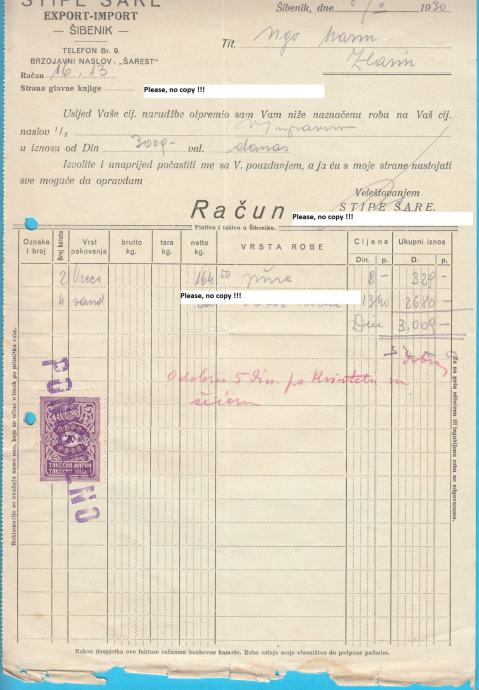 STIPE ŠARE
EXPORT-IMPORT
— ŠIBENIK —
TELEFON Br. 9.
BRZOJAVNI NASLOV: „ŠAREST"
Račun 16, 13
Strana glavne knjige
Šibenik, dne 1930
Tit.
Zlarin
Please, no copy !!!
Usljed Vaše cij. narudžbe otpremio sam Vam niže naznačenu robu na Vaš cij.
naslov ⁵/₂
u iznosu od Din 3009- val. danas
Izvolite i unaprijed počastiti me sa V. pouzdanjem, a ja ću s moje strane nastojati
sve moguće da opravdam
Veleštovanjem
STIPE ŠARE.
Račun
Please, no copy !!!
Plativa i tuživo u Šibeniku.
Oznaka i broj Broj koleta Vrst pakovanja brutto kg. tara kg. netto kg. VRSTA ROBE Cijena Din. p. Ukupni iznos D. p.
2 Vreća 164 50 2 - 329 -
Please, no copy !!!
4 sand 1340 2680 -
Din 3.009 -
Odobrio 5 Din. po
POVOLJNO
20
ПАРА
PARA
ТАКСЕНА МАРКА
TAKSENA MARKA
Reklamacije se uvažuju samo one, koje se učine odmah po primitku robe.
Za na putu oštećenu ili izgubljenu robu ne odgovaramo.
Nakon dospjetka ove fakture računamo bankovne kamate. Roba ostaje moje vlasništvo do potpune podmire.